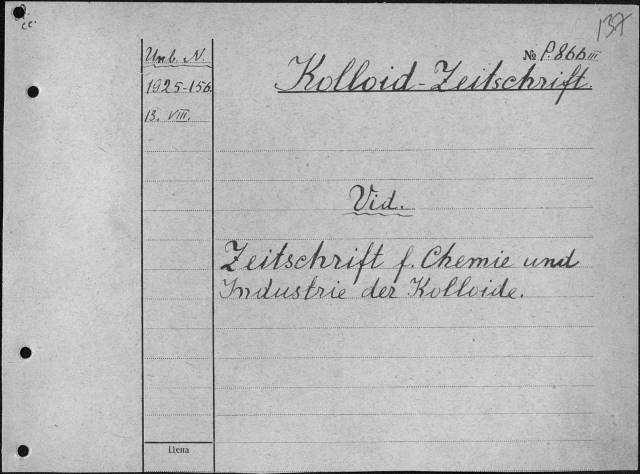 137
Инв. N.
№ P.866 III
Kolloid-Zeitschrift.
1925-156.
13. VIII.
Vid.
Zeitschrift f. Chemie und
Industrie der Kolloide.
Цена